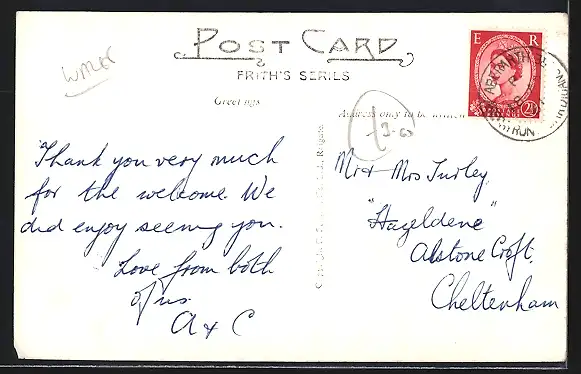 POST CARD
FRITH'S SERIES
Greetings
Address only to be written
E R
2½
Thank you very much
for the welcome. We
did enjoy seeing you.
Love from both
of us
A & C
Mr & Mrs Turley,
"Hazeldene"
Alstone Croft.
Cheltenham
Reigate.